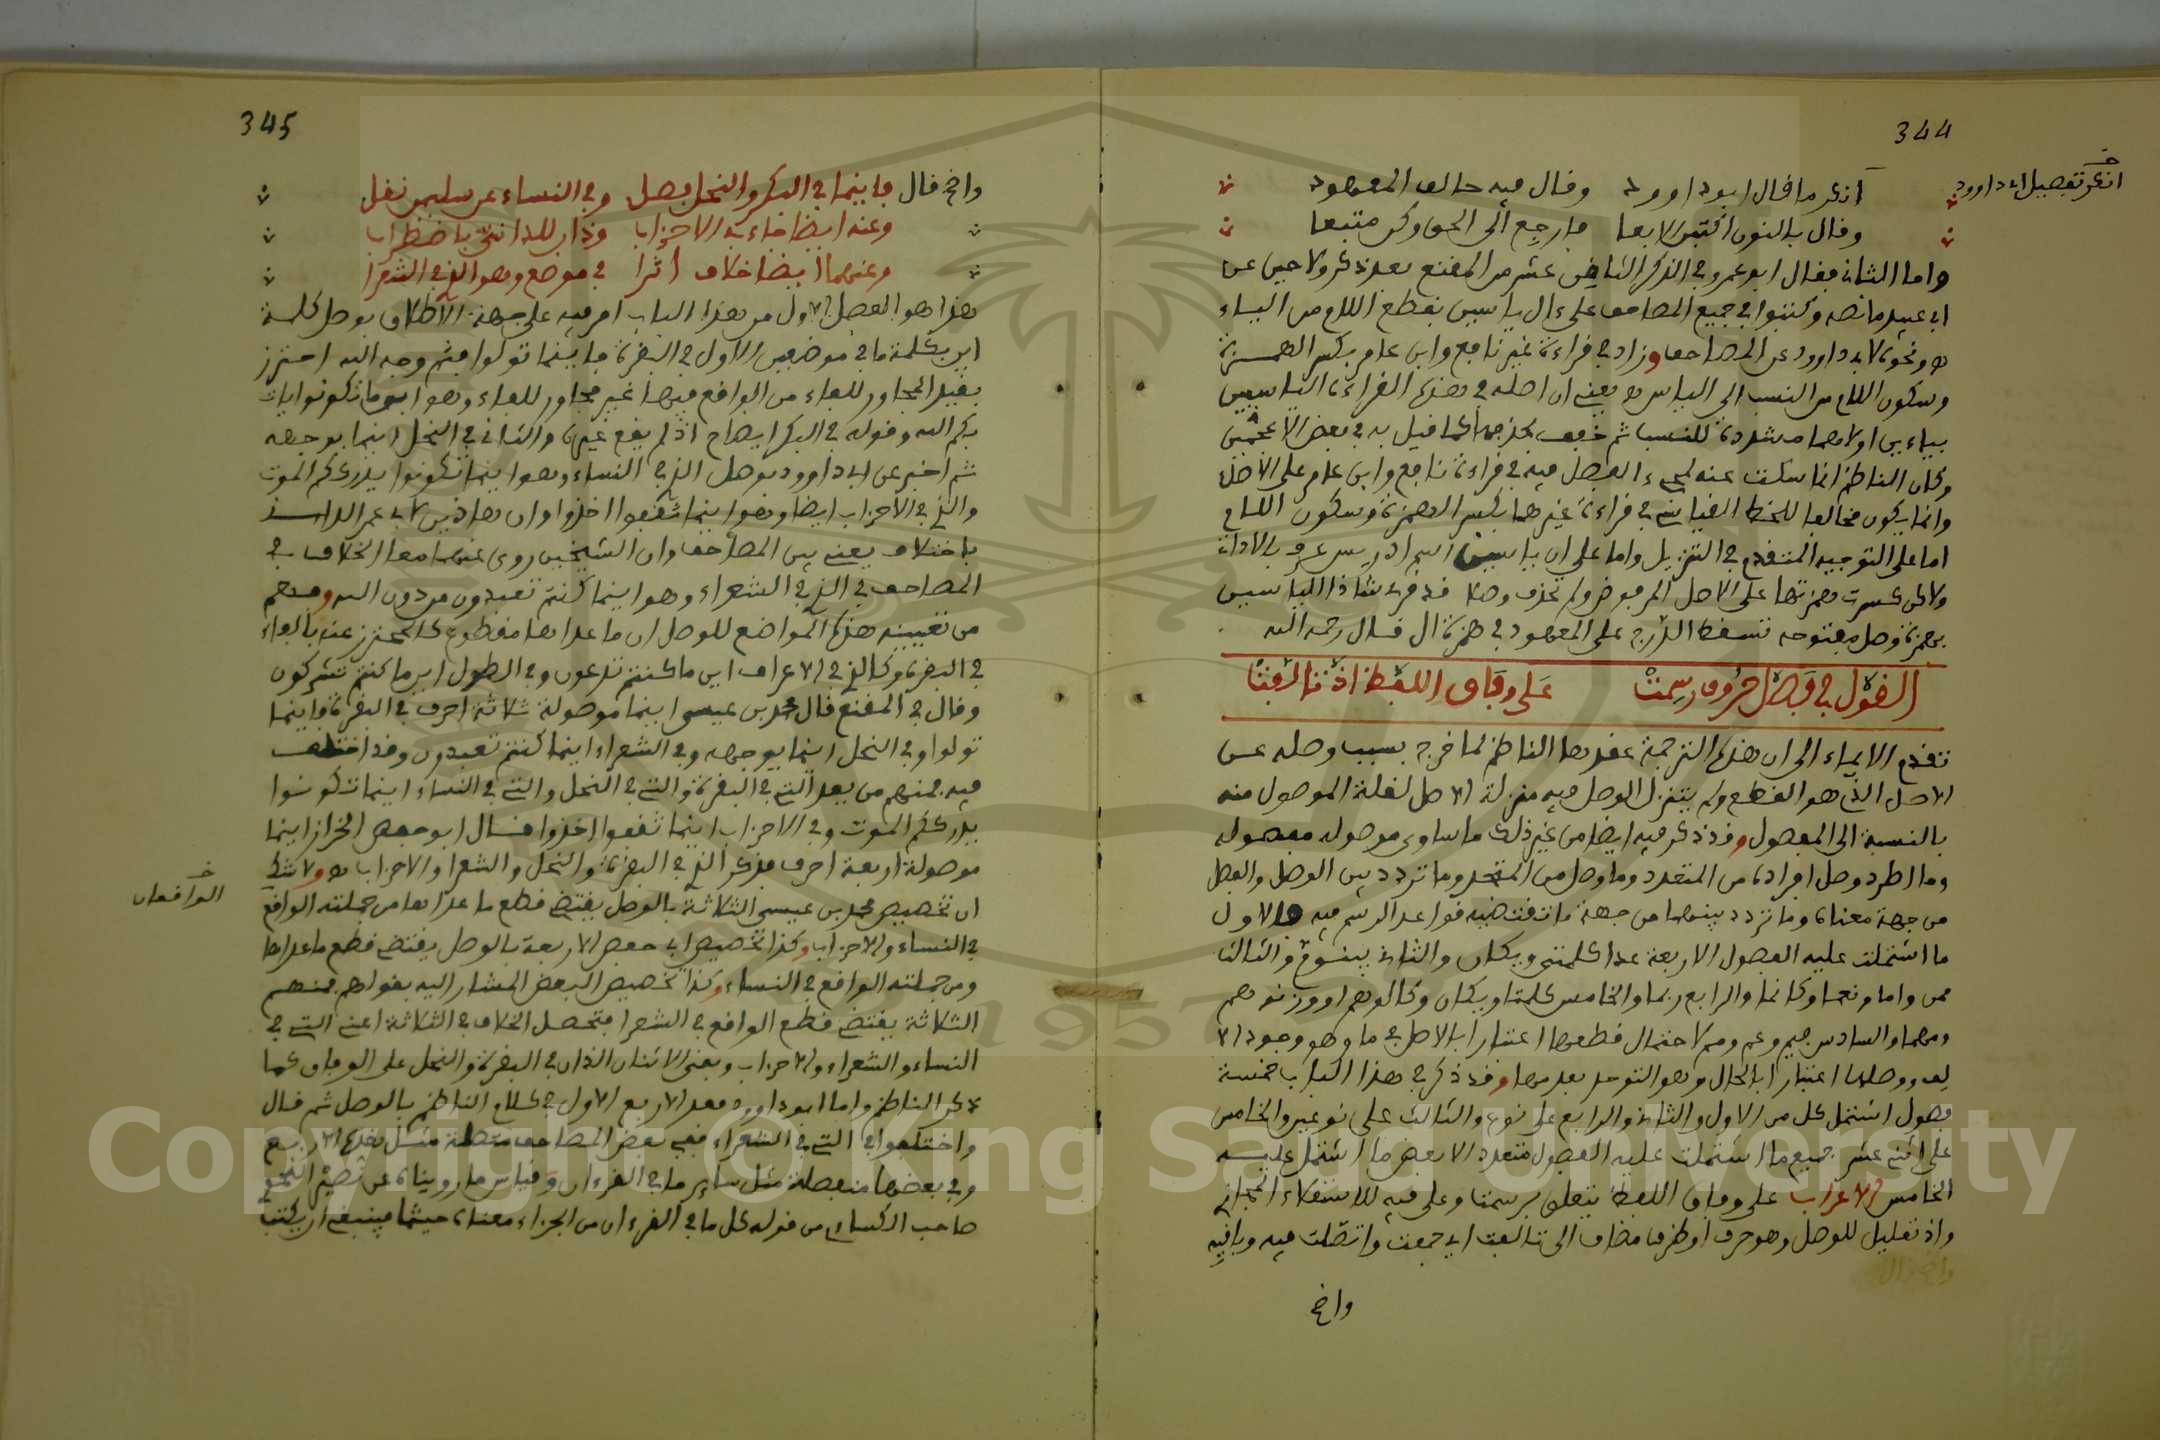 344
انكر تفصيل ابى داوود
أنكر ما قال ابو داوود وقال فيه خالف المعهود
وقال بالنون اكتبن لا بفا فارجع الى الحق وكن متبعا
واما الثانى فقال ابو عمرو في الذكر الثامن عشر من المقنع بعد ذكر ولا حين عن
ابى عبيد ما نصه وكتبوا في جميع المصاحف على ءال ياسين بقطع اللام من الياء
ه ونحوه لابى داوود عن المصاحف وزاد في قراءة غير نافع وابن عامر بكسر الهمزة
وسكون اللام من النسب الى الياس ه يعنى ان اصله في هذه القراءة الياسيين
بياءين اولاهما مشددة للنسب ثم خفف بحذفها كما قيل به في بعض الاعجمين
وكان الناظم انما سكت عنه لمجيء الفصل فيه في قراءة نافع وابن عامر على الاصل
وانما يكون مخالفا للخط القياسي في قراءة غيرهما بكسر الهمزة وسكون اللام
اما على التوجيه المتقدم في التنزيل واما على ان ياسين اسم ادريس عرف بالاداة
ولاكن كسرت همزتها على الاصل المرفوض ولم تحذف وصلا فقد قرئ شاذا الياسين
بهمزة وصل مفتوحه تسقط الدرج على المعهود في همزة ال قال رحمه الله
القول في وصل حروف رسمت على وفاق اللفظ اذ تالفت
تقدم الايماء الى ان هذه الترجمة عقدها الناظم لما خرج بسبب وصله عن
الاصل الذي هو القطع ولم يتنزل الوصل فيه منزلة الاصل لقلة الموصول منه
بالنسبة الى المفصول وقد ذكر فيه ايضا من غير ذلك ما ساوى موصوله مفصوله
وما اطرد وصل افراده من المتعدد وما وصل من المتحد وما تردد بين الوصل والفصل
من جهة معناه وما تردد بينهما من جهة ما تقتضيه قواعد الرسم فيه فالاول
ما اشتملت عليه الفصول الاربعة عدا كلمتى ويكان والثانى بينوم والثالث
ممن واما ونعما وكانما والرابع ربما والخامس كلمتا ويكان وكالوهم اووزنوهم
ومهما والسادس فيم وعم ومم لاحتمال قطعها اعتبارا بالاصل في ما وهو وجود الا
لف ووصلها اعتبارا بالحال وهو التوحد بعد حذفها وقد ذكر في هذا الباب خمسة
فصول اشتمل كل من الاول والثانى والرابع على نوع والثالث على نوعين والخامس
على اثنى عشر جميع ما اشتملت عليه الفصول متعدد الا بعض ما اشتمل عليه
الخامس الاعراب على وفاق اللفظ يتعلق برسمت وعلى فيه للاستعلاء المجازى
واذ تعليل للوصل وهو حرف او ظرف مضاف الى تالفت اى جمعت واتصلت فيه وباقيه
واضح
345
واضح قال فاينما في البكر والنحل فصل وفي النساء عن سليمن نقل
وعنه ايضا جاء في الاحزاب وذان للدانى باضطراب
وعنهما ايضا خلاف أثرا في موضع وهو الذي في الشعرا
هذا هو الفصل الاول من هذا الباب امر فيه على جهة الاطلاق بوصل كلمة
اين بكلمة ما في موضعين الاول في البقرة فاينما تولوا فثم وجه الله احترز
بقيد المجاور للفاء من الواقع فيها غير مجاور للفاء وهو اينما تكونوا يات
بكم الله وقوله في البكر ايضاح اذ لم يقع غيره والثانى في النحل اينما يوجهه
ثم اخبر عن ابى داوود بوصل الذي في النساء وهو اينما تكونوا يدرككم الموت
والذي في الاحزاب ايضا وهو اينما ثقفوا اخذوا وان هاذين لابى عمر الدانى
باختلاف يعنى بين المصاحف وان الشيخين روى عنهما معا الخلاف في
المصاحف في الذي في الشعراء وهو اينما كنتم تعبدون من دون الله وفهم
من تعيينه هذه المواضع للوصل ان ما عداها مقطوع كالمحترز عنه بالفاء
في البقرة وكالذي في الاعراف اين ما كنتم تدعون وفي الطول اين ما كنتم تشركون
وقال في المقنع قال محمد بن عيسى اينما موصولة ثلاثة احرف في البقرة فاينما
تولوا وفي النحل اينما يوجهه وفي الشعراء اينما كنتم تعبدون وقد اختلف
فيه فمنهم من يعد التى في البقرة والتى في النحل والتى في النساء اينما تكونوا
يدرككم الموت وفي الاحزاب اينما ثقفوا اخذوا قال ابو حفص الخراز اينما
موصولة اربعة احرف فذكر الذي في البقرة والنحل والشعرا والاحزاب ه ولا شك
ان تخصيص محمد بن عيسى الثلاثة بالوصل يقتضي قطع ما عداها من جملته الواقع
الواقعان
في النساء والاحزاب وكذا تخصيص ابى حفص الاربعة بالوصل يقتضي قطع ما عداها
ومن جملته الواقع في النساء وكذا تخصيص البعض المشار اليه بقولهم فمنهم
الثلاثة يقتضي قطع الواقع في الشعرا فتحصل الخلاف في الثلاثة اعنى التى في
النساء والشعراء والاحزاب وبقى الاثنان الذان في البقرة والنحل على الوفاق كما
ذكر الناظم واما ابو داوود فعد الاربع الاول في كلام الناظم بالوصل ثم قال
واختلفوا في التى في الشعراء ففي بعض المصاحف متصلة مثل هذه الاربع
وفي بعضها منفصلة مثل ساير ما في القرءان وقياس ما رويناه عن نصير النحوي
صاحب الكسائى من قوله كل ما في القرءان من الجزاء معناه حيثما فينبغى ان يكتب
Copyright © King Saud University
1957